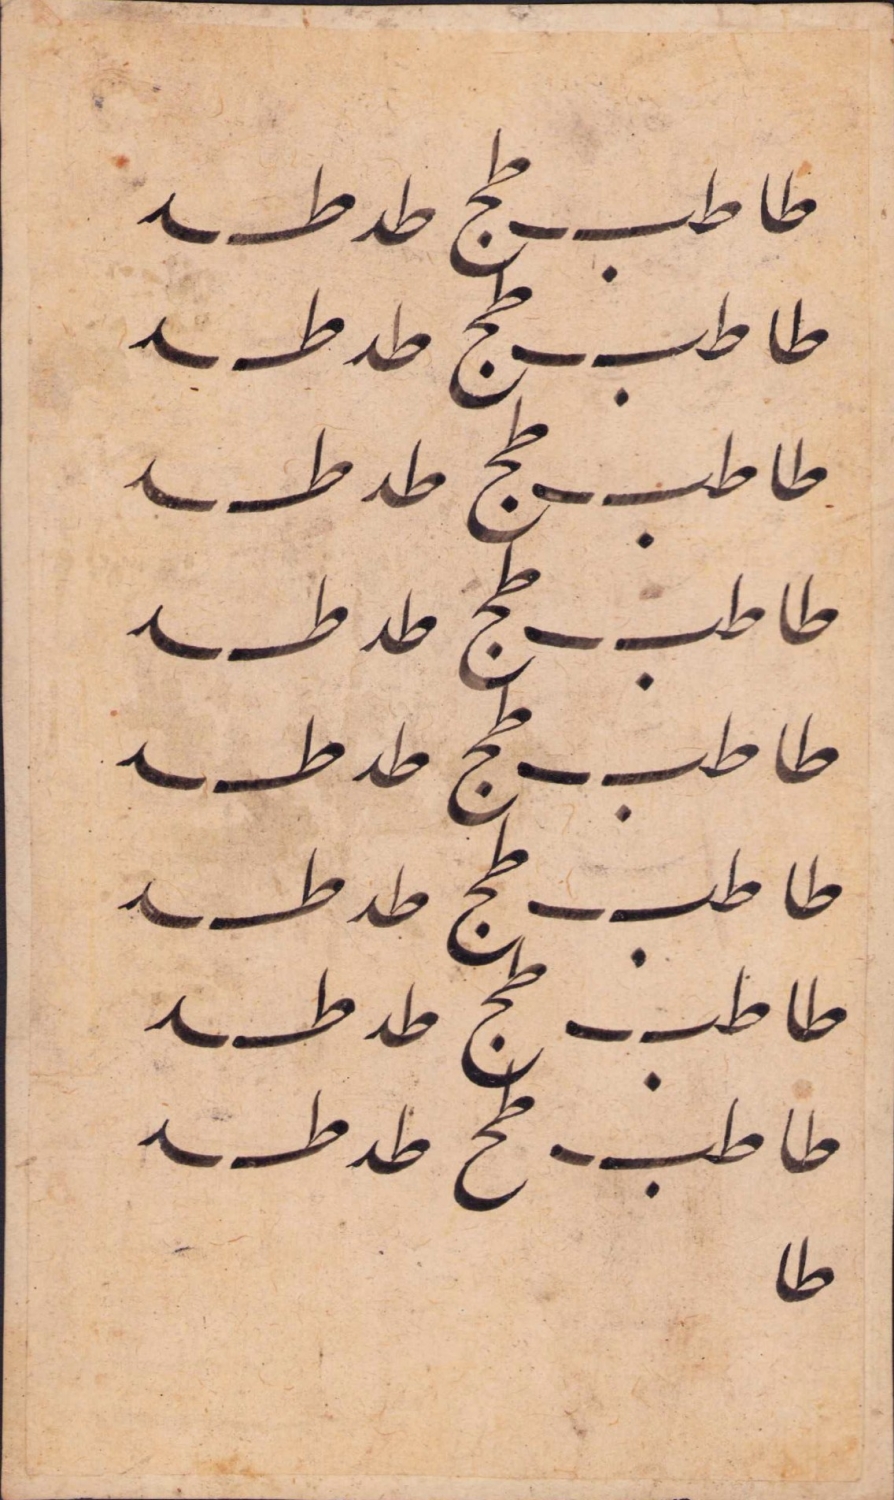 طا طب طج طد طد
طا طب طج طد طد
طا طب طج طد طد
طا طب طج طد طد
طا طب طج طد طد
طا طب طج طد طد
طا طب طج طد طد
طا طب طح طد طد
طا